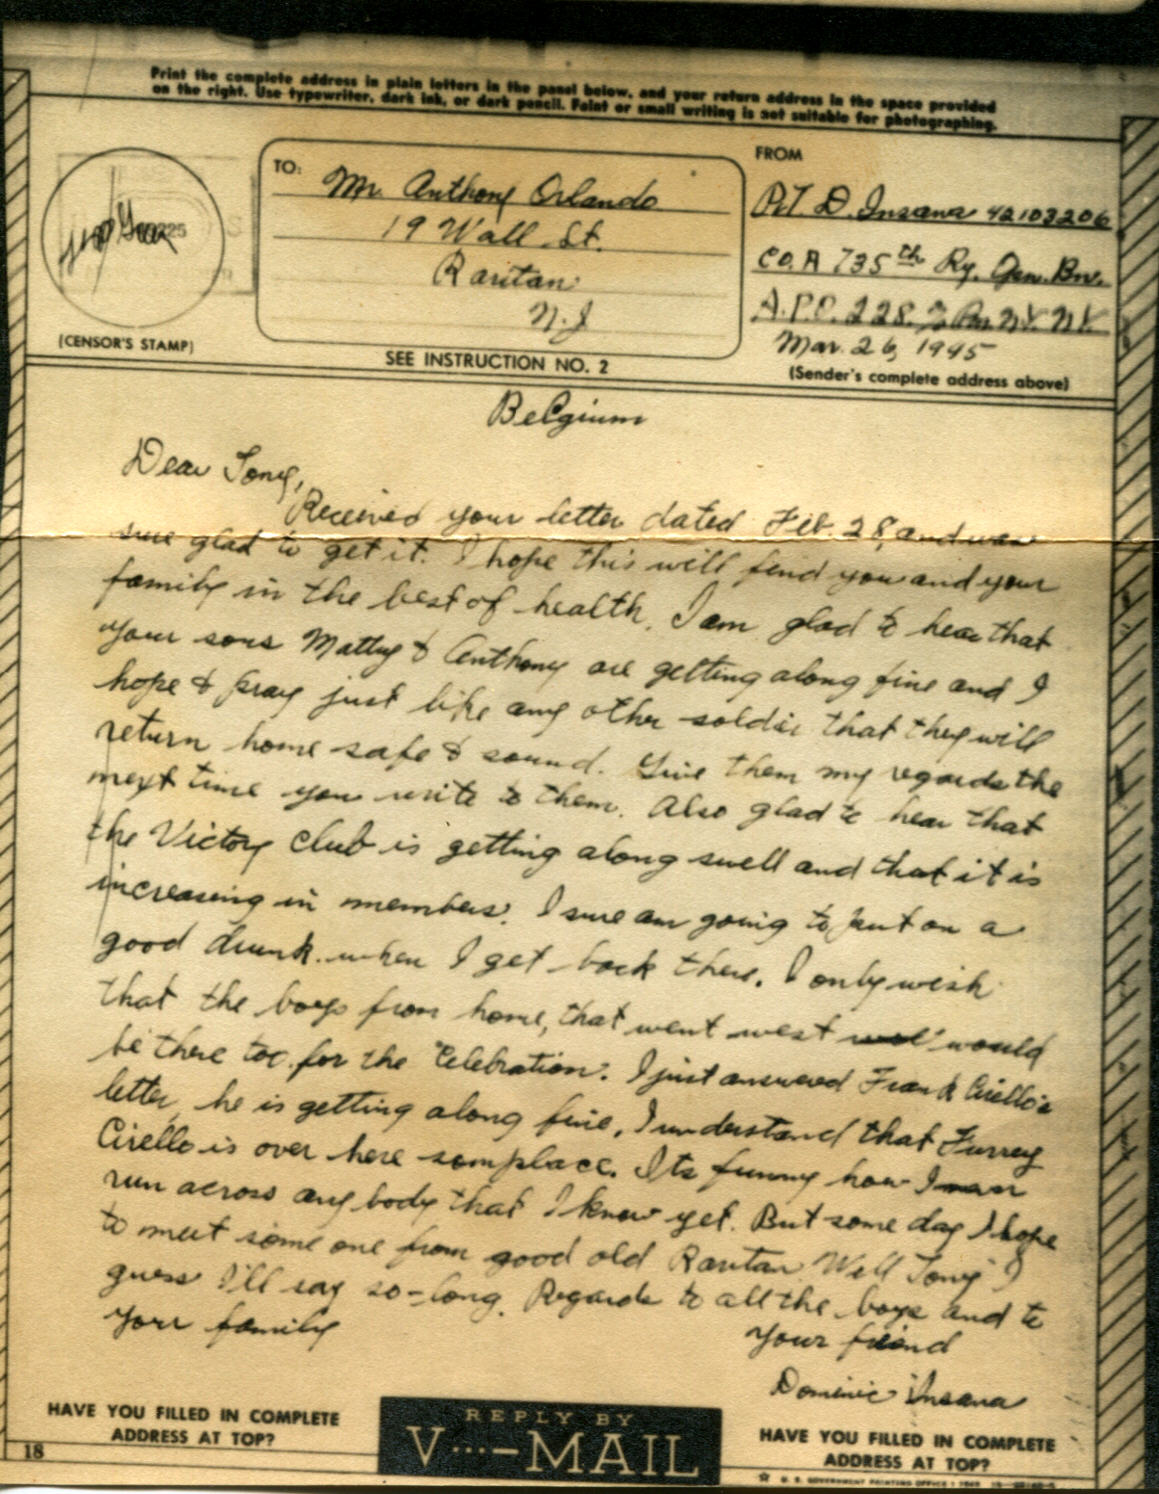 Print the complete address in plain letters in the panel below, and your return address in the space provided
on the right. Use typewriter, dark ink, or dark pencil. Faint or small writing is not suitable for photographing.
TO:
Mr. Anthony Orlando
19 Wall St.
Raritan
N.J
(CENSOR'S STAMP)
SEE INSTRUCTION NO. 2
FROM
Pvt D. Insana 42103206
Co. A 735th Ry. Gen. Bn.
A.P.O. 228 % Pm N.Y. N.Y.
Mar. 26, 1945
(Sender's complete address above)
Belgium
Dear Tony,
Received your letter dated Feb. 28, and was
sure glad to get it. I hope this will find you and your
family in the best of health. I am glad to hear that
your sons Matty & Anthony are getting along fine and I
hope & pray just like any other soldier that they will
return home safe & sound. Give them my regards the
next time you write to them. Also glad to hear that
the Victory Club is getting along swell and that it is
increasing in members. I sure am going to put on a
good drunk when I get back there. I only wish
that the boys from home, that went west would
be there too for the "Celebration". I just answered Frank Cirello's
letter, he is getting along fine. I understand that Furrey
Cirello is over here somplace. Its funny how I
run across any body that I know yet. But some day I hope
to meet some one from good old Raritan Well Tony I
guess I'll say so-long. Regards to all the boys and to
your family
Your friend
Dominic Insana
HAVE YOU FILLED IN COMPLETE
ADDRESS AT TOP?
REPLY BY
V···—MAIL
HAVE YOU FILLED IN COMPLETE
ADDRESS AT TOP?
18
U. S. GOVERNMENT PRINTING OFFICE